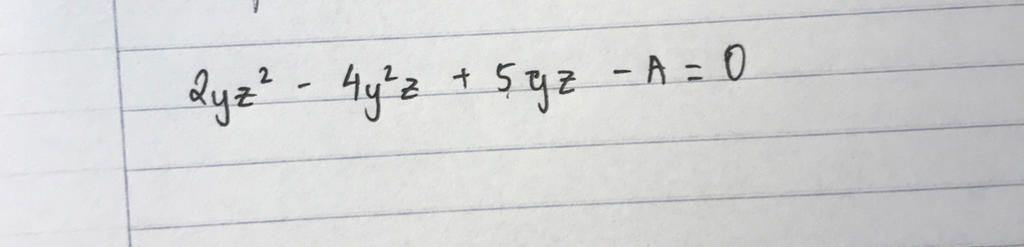 2yz² - 4y²z + 5yz - A = 0